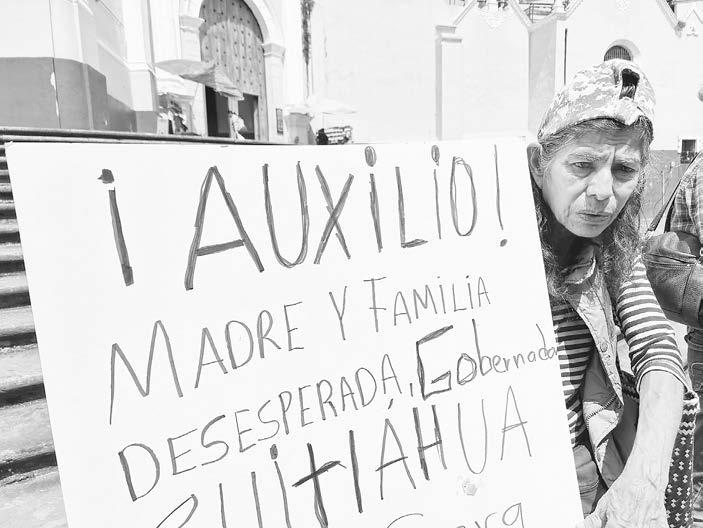 ¡AUXiLiO!
MADRE Y FAMiLiA
DESESPERADA, Gobernado
CUitlÁHUA